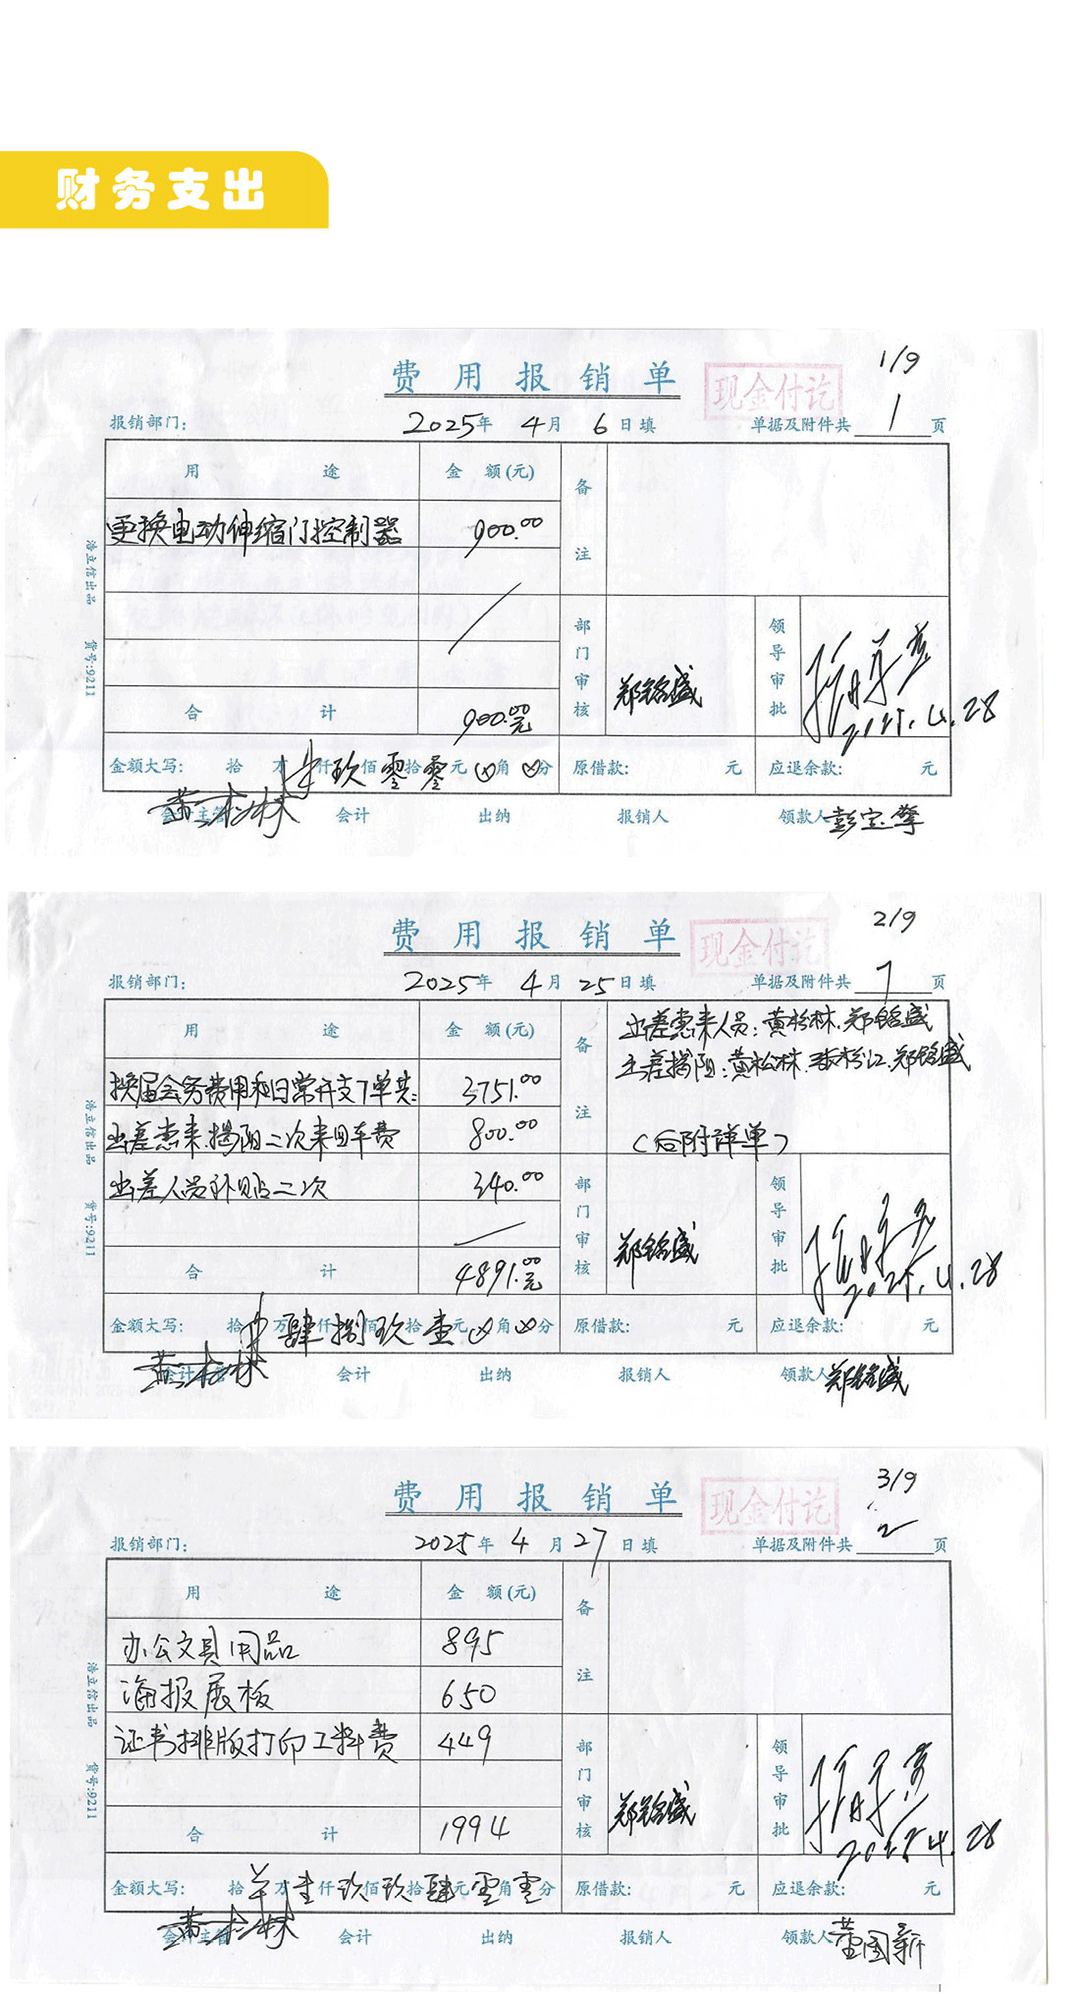 财务支出
费用报销单
现金付讫
1/9
报销部门：
2025年 4月 6日填
单据及附件共 1 页
用途
金额(元)
备注
更换电动伸缩门控制器
900.00
部门审核
郑铭盛
领导审批
2025.4.28
合计
900.00元
金额大写： 拾万仟玖佰零拾零元角分
原借款： 元
应退余款： 元
会计主管
黄松林
会计
出纳
报销人
领款人
彭宝擎
浩立信出品 货号:9211
费用报销单
现金付讫
2/9
报销部门：
2025年 4月 25日填
单据及附件共 7 页
用途
金额(元)
备注
出差惠来人员：黄松林.郑铭盛
出差揭阳：黄松林.张松江.郑铭盛
（后附详单）
换届会务费用和日常开支7单共：
3751.00
出差惠来.揭阳二次来回车费
800.00
出差人员补贴二次
340.00
部门审核
郑铭盛
领导审批
2025.4.28
合计
4891.00元
金额大写： 拾万肆仟捌佰玖拾壹元角分
原借款： 元
应退余款： 元
会计主管
黄松林
会计
出纳
报销人
领款人
郑铭盛
浩立信出品 货号:9211
费用报销单
现金付讫
3/9
报销部门：
2025年 4月 27日填
单据及附件共 2 页
用途
金额(元)
备注
办公文具用品
895
海报展板
650
证书排版打印工料费
449
部门审核
郑铭盛
领导审批
2025.4.28
合计
1994
金额大写： 拾万壹仟玖佰玖拾肆元零角零分
原借款： 元
应退余款： 元
会计主管
黄松林
会计
出纳
报销人
领款人
董国新
浩立信出品 货号:9211